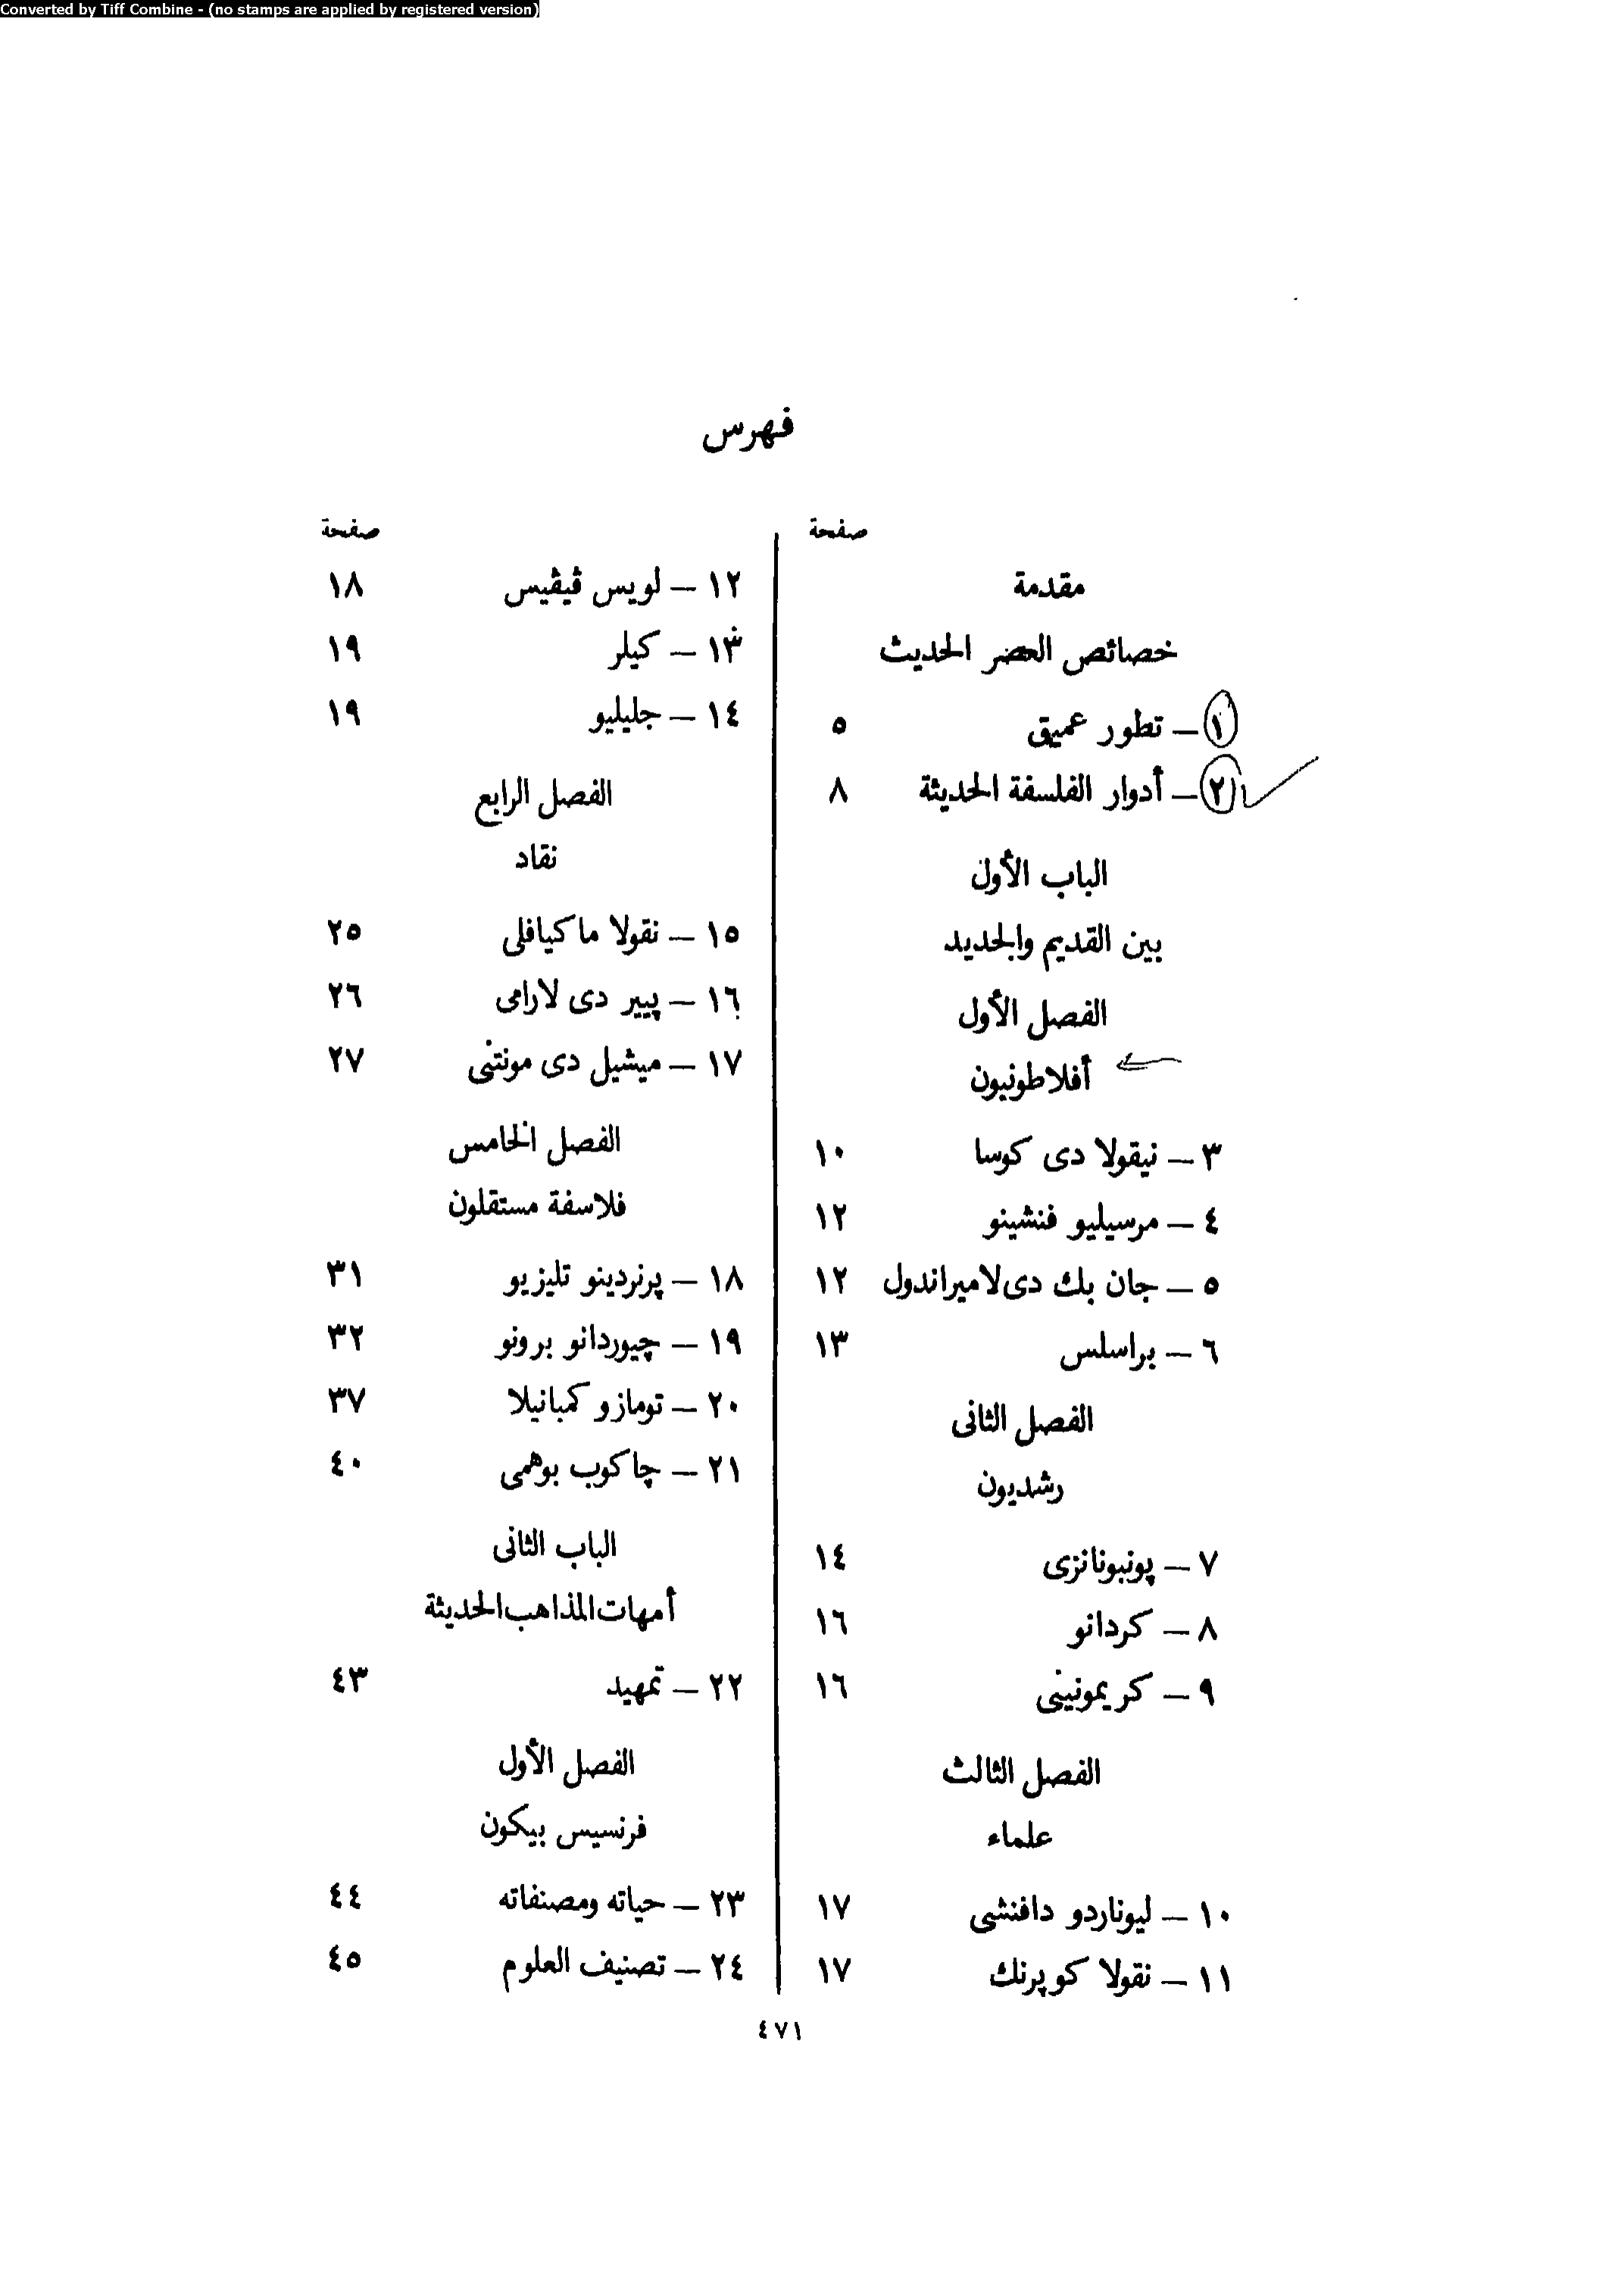 Converted by Tiff Combine - (no stamps are applied by registered version)
فهرس
صفحة
مقدمة
خصائص العصر الحديث
١ – تطور عميق ٥
٢ – أدوار الفلسفة الحديثة ٨
الباب الأول
بين القديم والجديد
الفصل الأول
أفلاطونيون
٣ – نيقولا دى كوسا ١٠
٤ – مرسيليو فنشينو ١٢
٥ – جان بك دى لاميراندول ١٢
٦ – براسلس ١٣
الفصل الثانى
رشديون
٧ – پونبوناتزى ١٤
٨ – كردانو ١٦
٩ – كريمونينى ١٦
الفصل الثالث
علماء
١٠ – ليوناردو دافنشى ١٧
١١ – نقولا كوپرنك ١٧
صفحة
١٢ – لويس ڤيڤيس ١٨
١٣ – كپلر ١٩
١٤ – جليليو ١٩
الفصل الرابع
نقاد
١٥ – نقولا ماكيافلى ٢٥
١٦ – پيير دى لارامى ٢٦
١٧ – ميشيل دى مونتنى ٢٧
الفصل الخامس
فلاسفة مستقلون
١٨ – برنردينو تليزيو ٣١
١٩ – چيوردانو برونو ٣٢
٢٠ – تومازو كمبانيلا ٣٧
٢١ – چاكوب بوهمى ٤٠
الباب الثانى
أمهات المذاهب الحديثة
٢٢ – تمهيد ٤٣
الفصل الأول
فرنسيس بيكون
٢٣ – حياته ومصنفاته ٤٤
٢٤ – تصنيف العلوم ٤٥
٤٧١